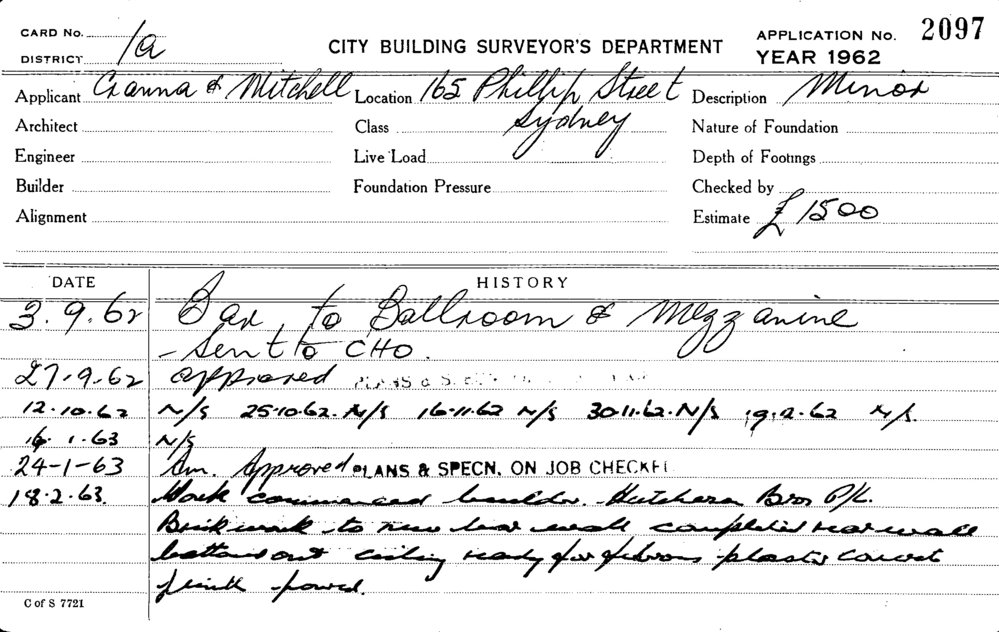 CARD No.
DISTRICT 1a
CITY BUILDING SURVEYOR'S DEPARTMENT
APPLICATION No. 2097
YEAR 1962
Applicant Cranna & Mitchell Location 165 Phillip Street Description Minor
Sydney
Architect Class Nature of Foundation
Engineer Live Load Depth of Footings
Builder Foundation Pressure Checked by
Alignment Estimate £1500
DATE HISTORY
3.9.62 Bar, to Ballroom & Mezzanine
- Sent to CHO.
27-9-62 approved PLANS &
12.10.62 N/S 25.10.62. N/S 16.11.62 N/S 30.11.62. N/S 19.12.62 N/S.
16.1.63 N/S
24-1-63 Am. Approved PLANS & SPECN. ON JOB CHECKE
18.2.63. Work commenced builder. Hutcherson Bros P/L.
Brickwork to new bar wall completed rear wall
battened out ceiling ready for fibrous plaster
plinth poured.
C of S 7721